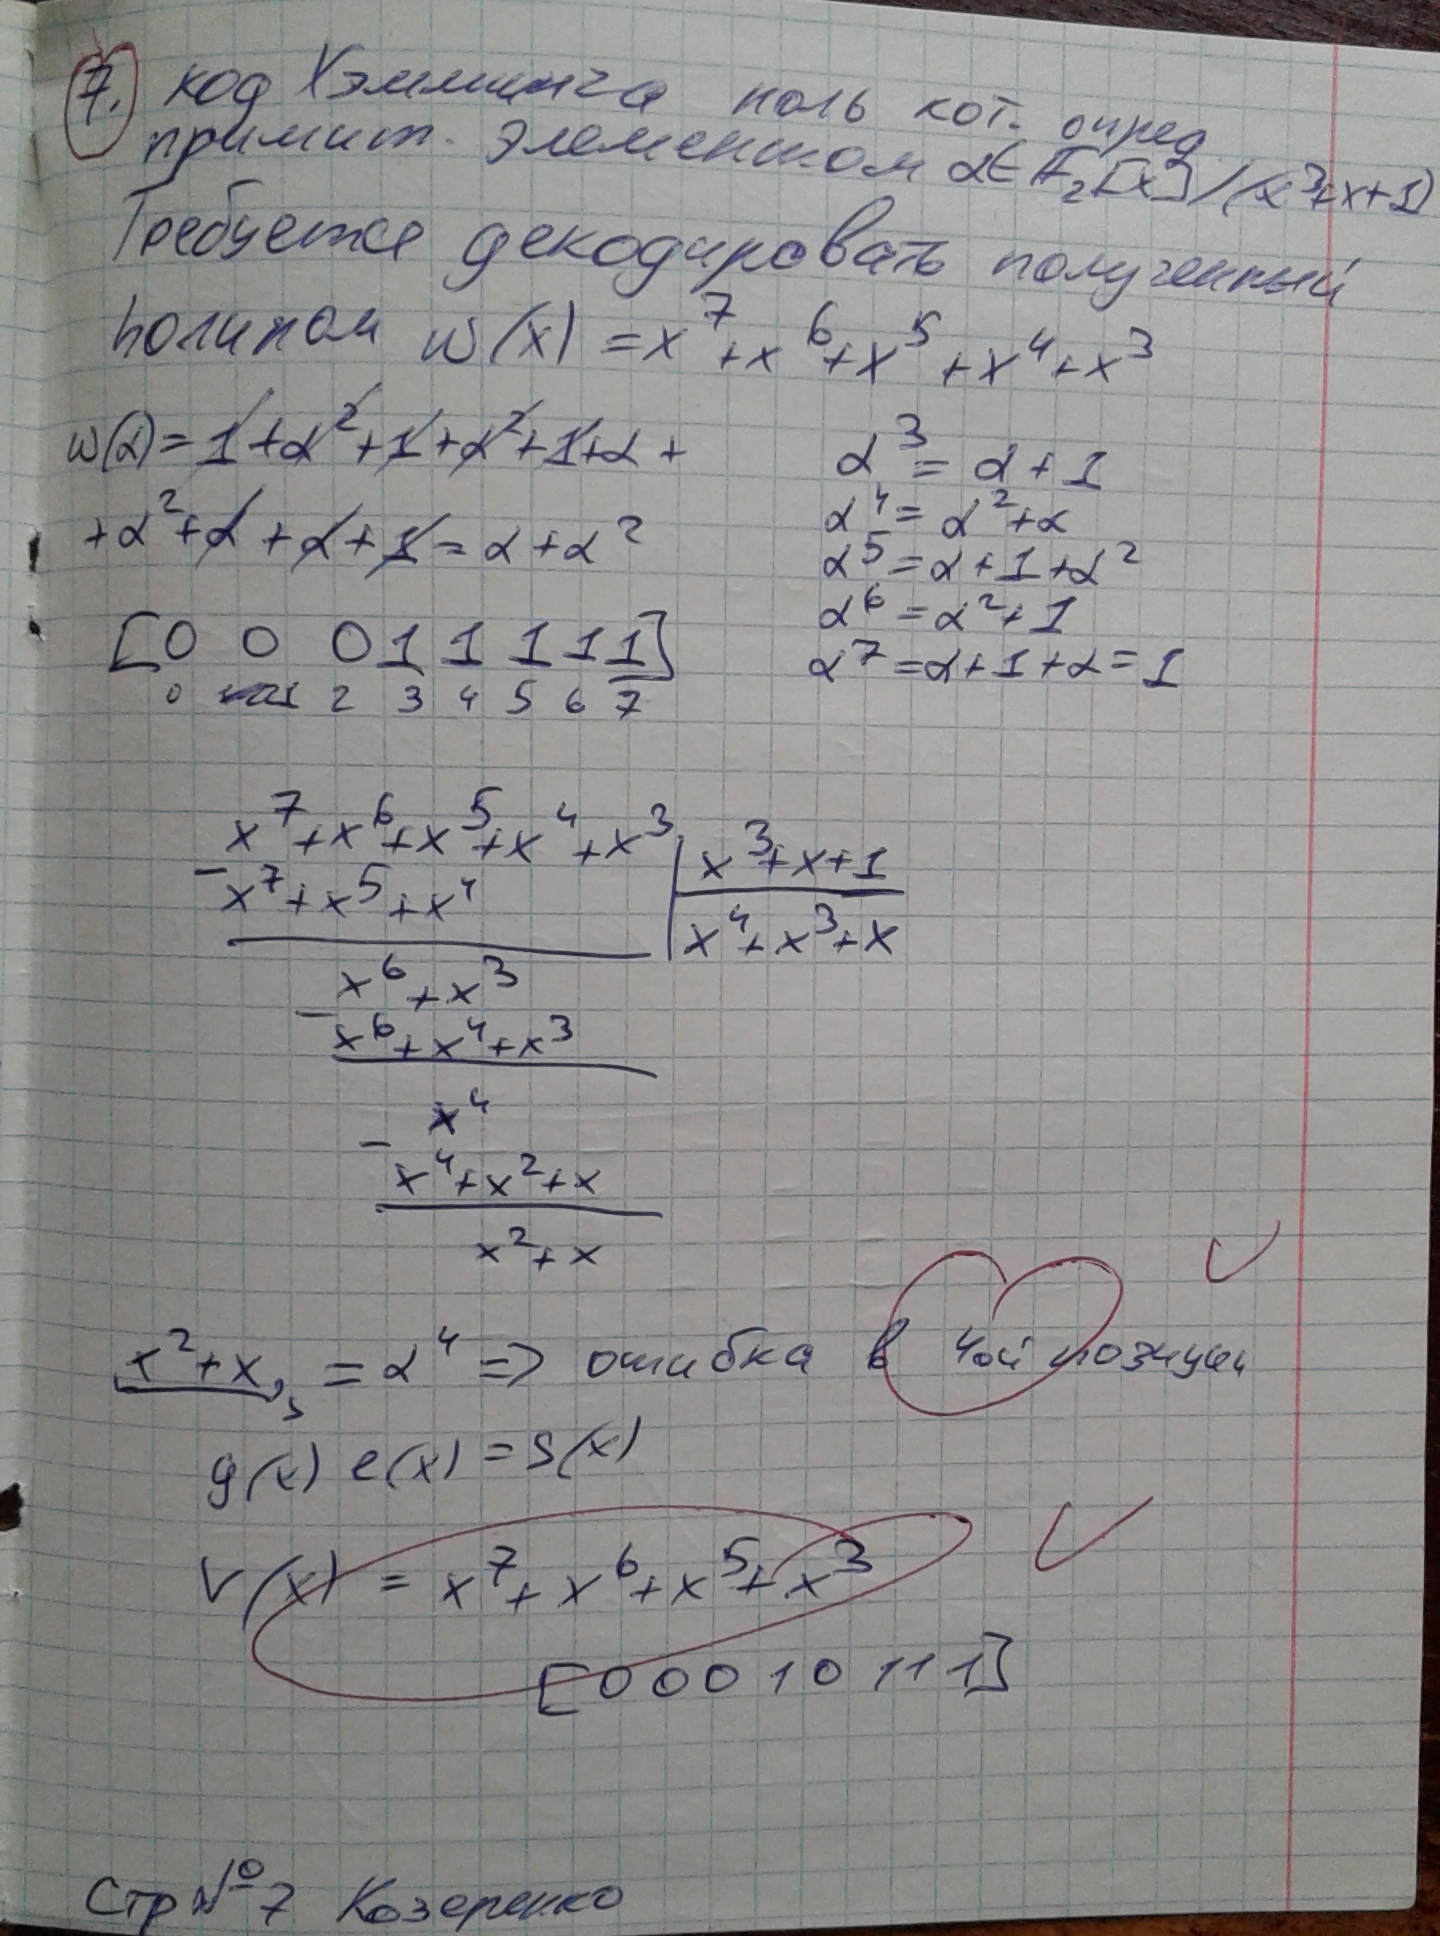 7. код Хэмминга ноль кот. опред
примит. элементом α∈F₂[x]/(x³+x+1)
Требуется декодировать полученный
полином w(x) = x⁷+x⁶+x⁵+x⁴+x³
w(α) = 1+α²+1+α²+1+α+
+α²+α+α+1 = α+α²
α³ = α+1
α⁴ = α²+α
α⁵ = α+1+α²
α⁶ = α²+1
α⁷ = α+1+α = 1
[0 0 0 1 1 1 1 1]
0 1 2 3 4 5 6 7
x⁷+x⁶+x⁵+x⁴+x³ | x³+x+1
− x⁷+x⁵+x⁴ | x⁴+x³+x
x⁶+x³
− x⁶+x⁴+x³
x⁴
− x⁴+x²+x
x²+x
x²+x = α⁴ => ошибка в 4ой позиции
s
g(x) e(x) = s(x)
v(x) = x⁷+x⁶+x⁵+x³
[0 0 0 1 0 1 1 1]
Стр №7 Козеренко